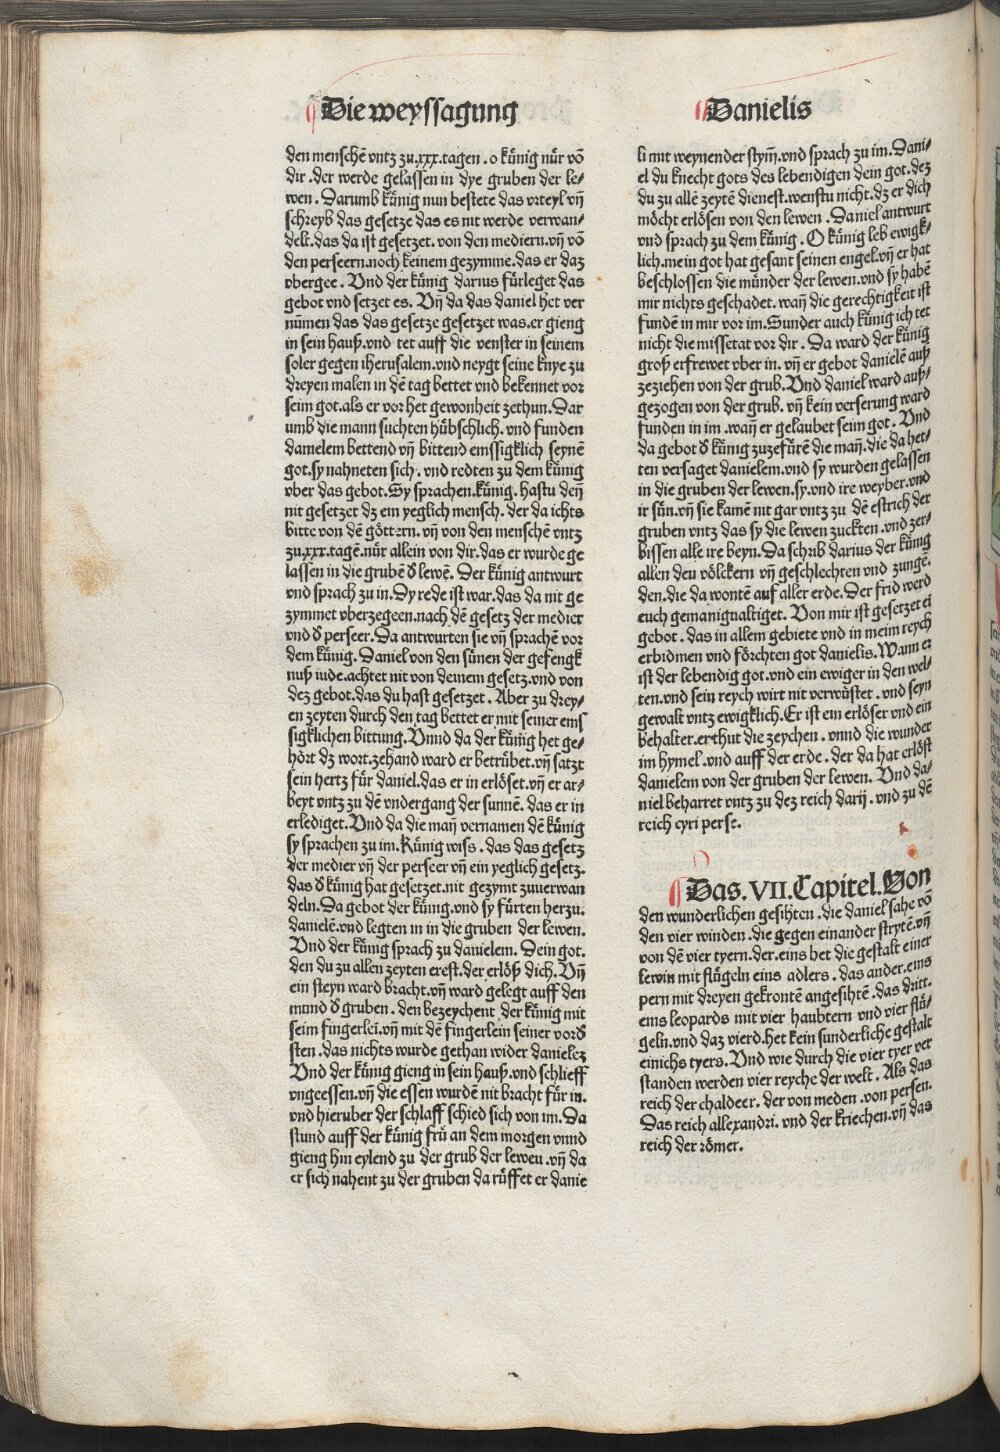 Die weyssagung
Danielis
den menschē vntz zu.xxx.tagen.o künig nür võ
dir.der werde gelassen in dye gruben der le-
wen.Darumb künig nun bestete das vrteyl vñ
schreyb das gesetze das es nit werde verwan-
delt.das da ist gesetzet.von den mediern.vñ võ
den perseern.noch keinem gezymme.das er daz
vbergee.Vnd der künig darius fürleget das
gebot vnd setzet es.Vñ da das daniel het ver
nūmen das das gesetze gesetzet was.er gieng
in sein hauß.vnd tet auff die venster in seinem
soler gegen iherusalem.vnd neygt seine knye zu
dreyen malen in dē tag bettet vnd bekennet vor
seim got.als er vor het gewonheit zethun.Dar
umb die mann suchten hübschlich.vnd funden
danielem bettend vñ bittend emssigklich seynē
got.sy nahneten sich.vnd redten zu dem künig
vber das gebot.Sy sprachen.künig.hastu deñ
nit gesetzet dz ein yeglich mensch.der da ichts
bitte von dē göttern.vñ von den menschē vntz
zu.xxx.tagē.nür allein von dir.das er wurde ge
lassen in die grubē ð lewē.Der künig antwurt
vnd sprach zu in.Dy rede ist war.das da nit ge
zymmet vberzegeen.nach dē gesetz der medier
vnd ð perseer.Da antwurten sie vñ sprachē vor
dem künig.Daniel von den sünen der gefengk
nuß iude.achtet nit von deinem gesetz.vnd von
dez gebot.das du hast gesetzet.Aber zu drey-
en zeyten durch den tag bettet er mit seiner ems
sigklichen bittung.Vnnd da der künig het ge-
hört dz wort.zehand ward er betrübet.vñ satzt
sein hertz für daniel.das er in erlöset.vñ er ar-
beyt vntz zu dē vndergang der sunnē.das er in
erlediget.Vnd da die mañ vernamen dē künig
sy sprachen zu im.Künig wiss.das das gesetz
der medier vñ der perseer vñ ein yeglich gesetz.
das ð künig hat gesetzet.nit gezymt zuuerwan
deln.Da gebot der künig.vnd sy fürten herzu.
danielē.vnd legten in in die gruben der lewen.
Vnd der künig sprach zu danielem.Dein got.
den du zu allen zeyten erest.der erlöß dich.Vñ
ein steyn ward bracht.vñ ward gelegt auff den
mund ð gruben.den bezeychent der künig mit
seim fingerleī.vñ mit dē fingerlein seiner vorð
sten.das nichts wurde gethan wider danielez
Vnd der künig gieng in sein hauß.vnd schlieff
vngeessen.vñ die essen wurdē nit bracht für in.
vnd hieruber der schlaff schied sich von im.Da
stund auff der künig frü an dem morgen vnnd
gieng hin eylend zu der grub der lewen.vñ da
er sich nahent zu der gruben da rüffet er danie
li mit weynender stym̄.vnd sprach zu im.Dani-
el du knecht gots des lebendigen dein got.dez
du zu allē zeytē dienest.wenstu nicht.dz er dich
möcht erlösen von den lewen.Daniel antwurt
vnd sprach zu dem künig.O künig leb ewigk-
lich.mein got hat gesant seinen engel.vñ er hat
beschlossen die münder der lewen.vnd sy habē
mir nichts geschadet.wañ die gerechtigkeit ist
fundē in mir vor im.Sunder auch künig ich tet
nicht die missetat vor dir.Da ward der künig
groß erfrewet vber in.vñ er gebot danielē auß
zeziehen von der grub.Vnd daniel ward auß-
gezogen von der grub.vñ kein verserung ward
funden in im.wañ er gelaubet seim got.Vnd
da gebot ð künig zuzefürē die mañ.die da het-
ten versaget danielem.vnd sy wurden gelassen
in die gruben der lewen.sy.vnd ire weyber.vnd
ir sün.vñ sie kamē nit gar vntz zu dē estrich der
gruben vntz das sy die lewen zuckten.vnd zer-
bissen alle ire beyn.Da schrib darius der künig
allen deu völckern vñ geschlechten vnd zungē.
den.die da wontē auf aller erde.Der frid werd
euch gemanigualtiget.Von mir ist gesetzet eī
gebot.das in allem gebiete vnd in meim reych
erbidmen vnd förchten got danielis.Wann er
ist der lebendig got.vnd ein ewiger in den wel-
ten.vnd sein reych wirt nit verwüstet.vnd seyn
gewalt vntz ewigklich.Er ist ein erlöser vnd ein
behalter.er thut die zeychen.vnnd die wunder
im hymel.vnd auff der erde.der da hat erlöst
danielem von der gruben der lewen.Vnd da-
niel beharret vntz zu dez reich darij.vnd zu dē
reich cyri perse.
Das.VII.Capitel.Von
den wunderlichen gesihten.die daniel sahe võ
den vier winden.die gegen einander strytē.vñ
von dē vier tyern.der.eins het die gestalt einer
lewin mit flügeln eins adlers.das ander.eins
pern mit dreyen gekrontē angesihtē.das dritt.
eins leopards mit vier haubtern vnd vier flü-
geln.vnd daz vierd.het kein sunderliche gestalt
einichs tyers.Vnd wie durch die vier tyer ver
standen werden vier reyche der welt.Als das
reich der chaldeer.der von meden.von persen.
Das reich allexandri.vnd der kriechen.vñ das
reich der römer.